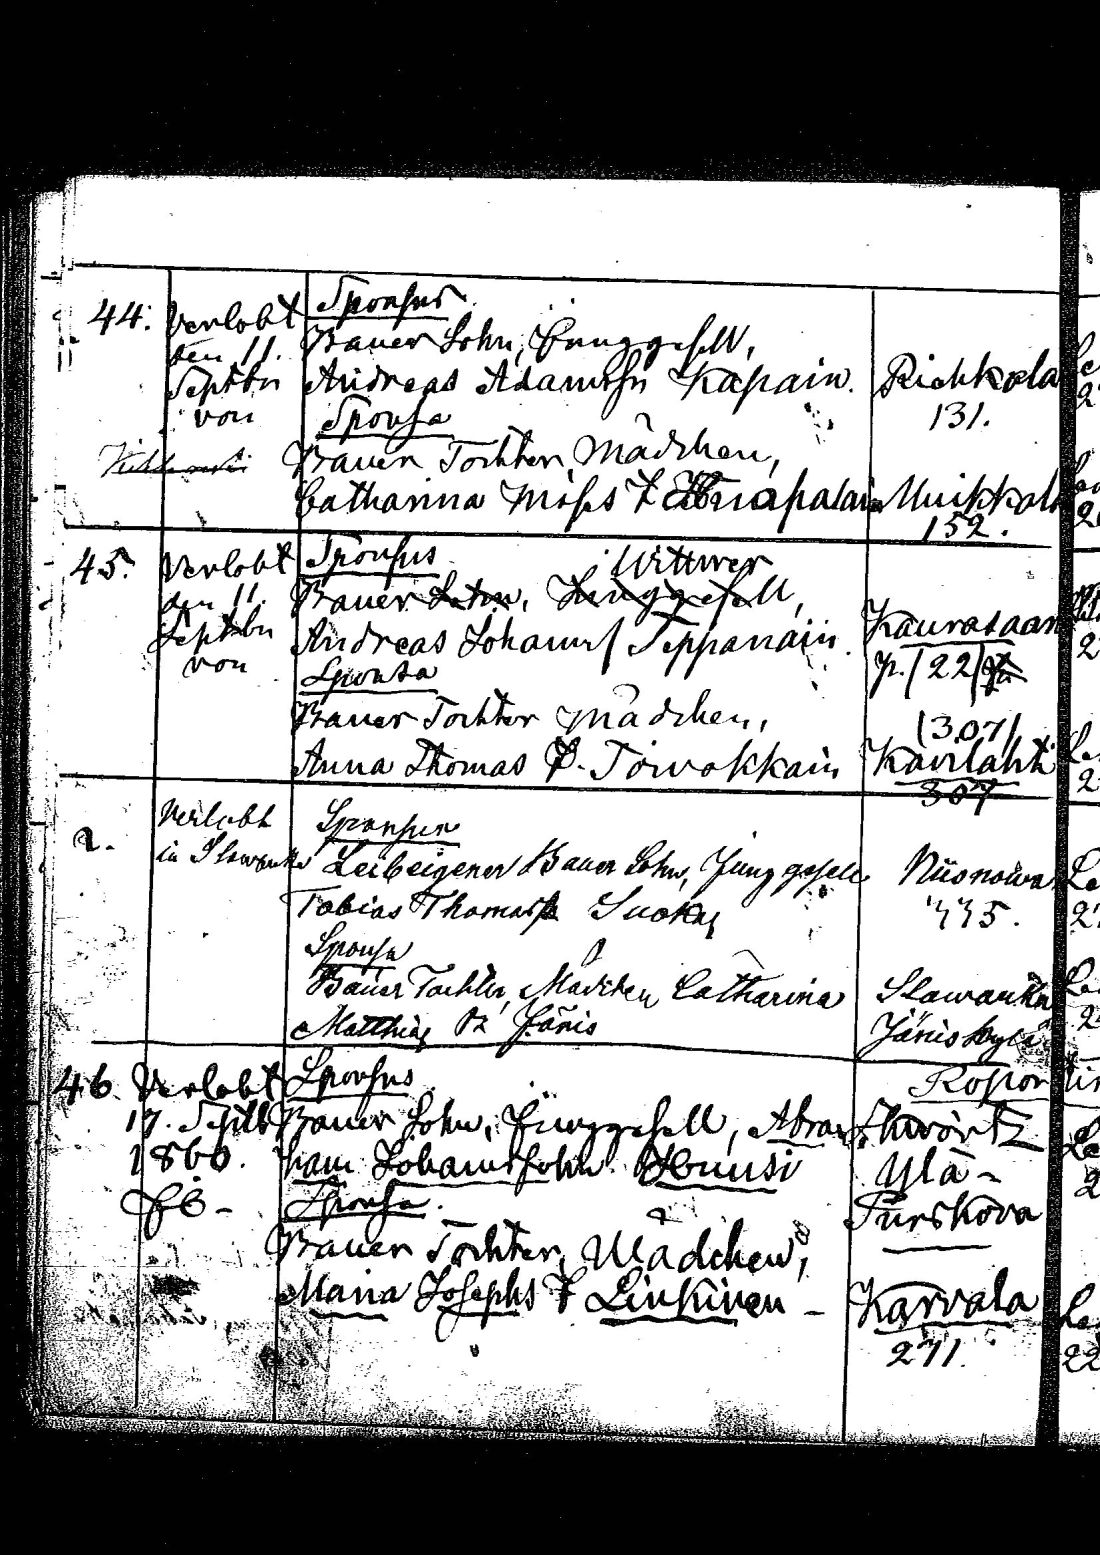 44.
Verlobt
den 11.
Septbr
von
Sponsus
Bauer Sohn, Junggesell,
Andreas Adamssn Kapain.
Sponsa
Bauer Tochter, Mädchen,
Catharina Moses T.
Riehkala
131.
Muikkala
152.
45.
Verlobt
den 11.
Septbr
von
Sponsus
Wittwer
Bauer Sohn, Junggesell,
Andreas Johanns Teppanain.
Sponsa
Bauer Tochter Mädchen,
Anna Thomas T. Toivokkain
Kaurasaari
p. 122
(307)
Kavilahti
307
2.
Verlobt
in Slawanka
Sponsus
Leibeigener Bauer Sohn, Junggesell
Tobias Thomas Suoky
Sponsa
Bauer Tochter, Mädchen Catharina
Matthias Tr. Jänis
Niisnowa
335.
Slawanka
Jäniskylä
46.
Verlobt
17. Septbr
1860.
Sponsus
Bauer Sohn, Junggesell, Abra-
ham Johannssohn. Huusi
Sponsa.
Bauer Tochter, Mädchen,
Maria Josephs T. Linkinen –
Kopor
Skworitz
Ylä-
Purskova
Karvala
271.